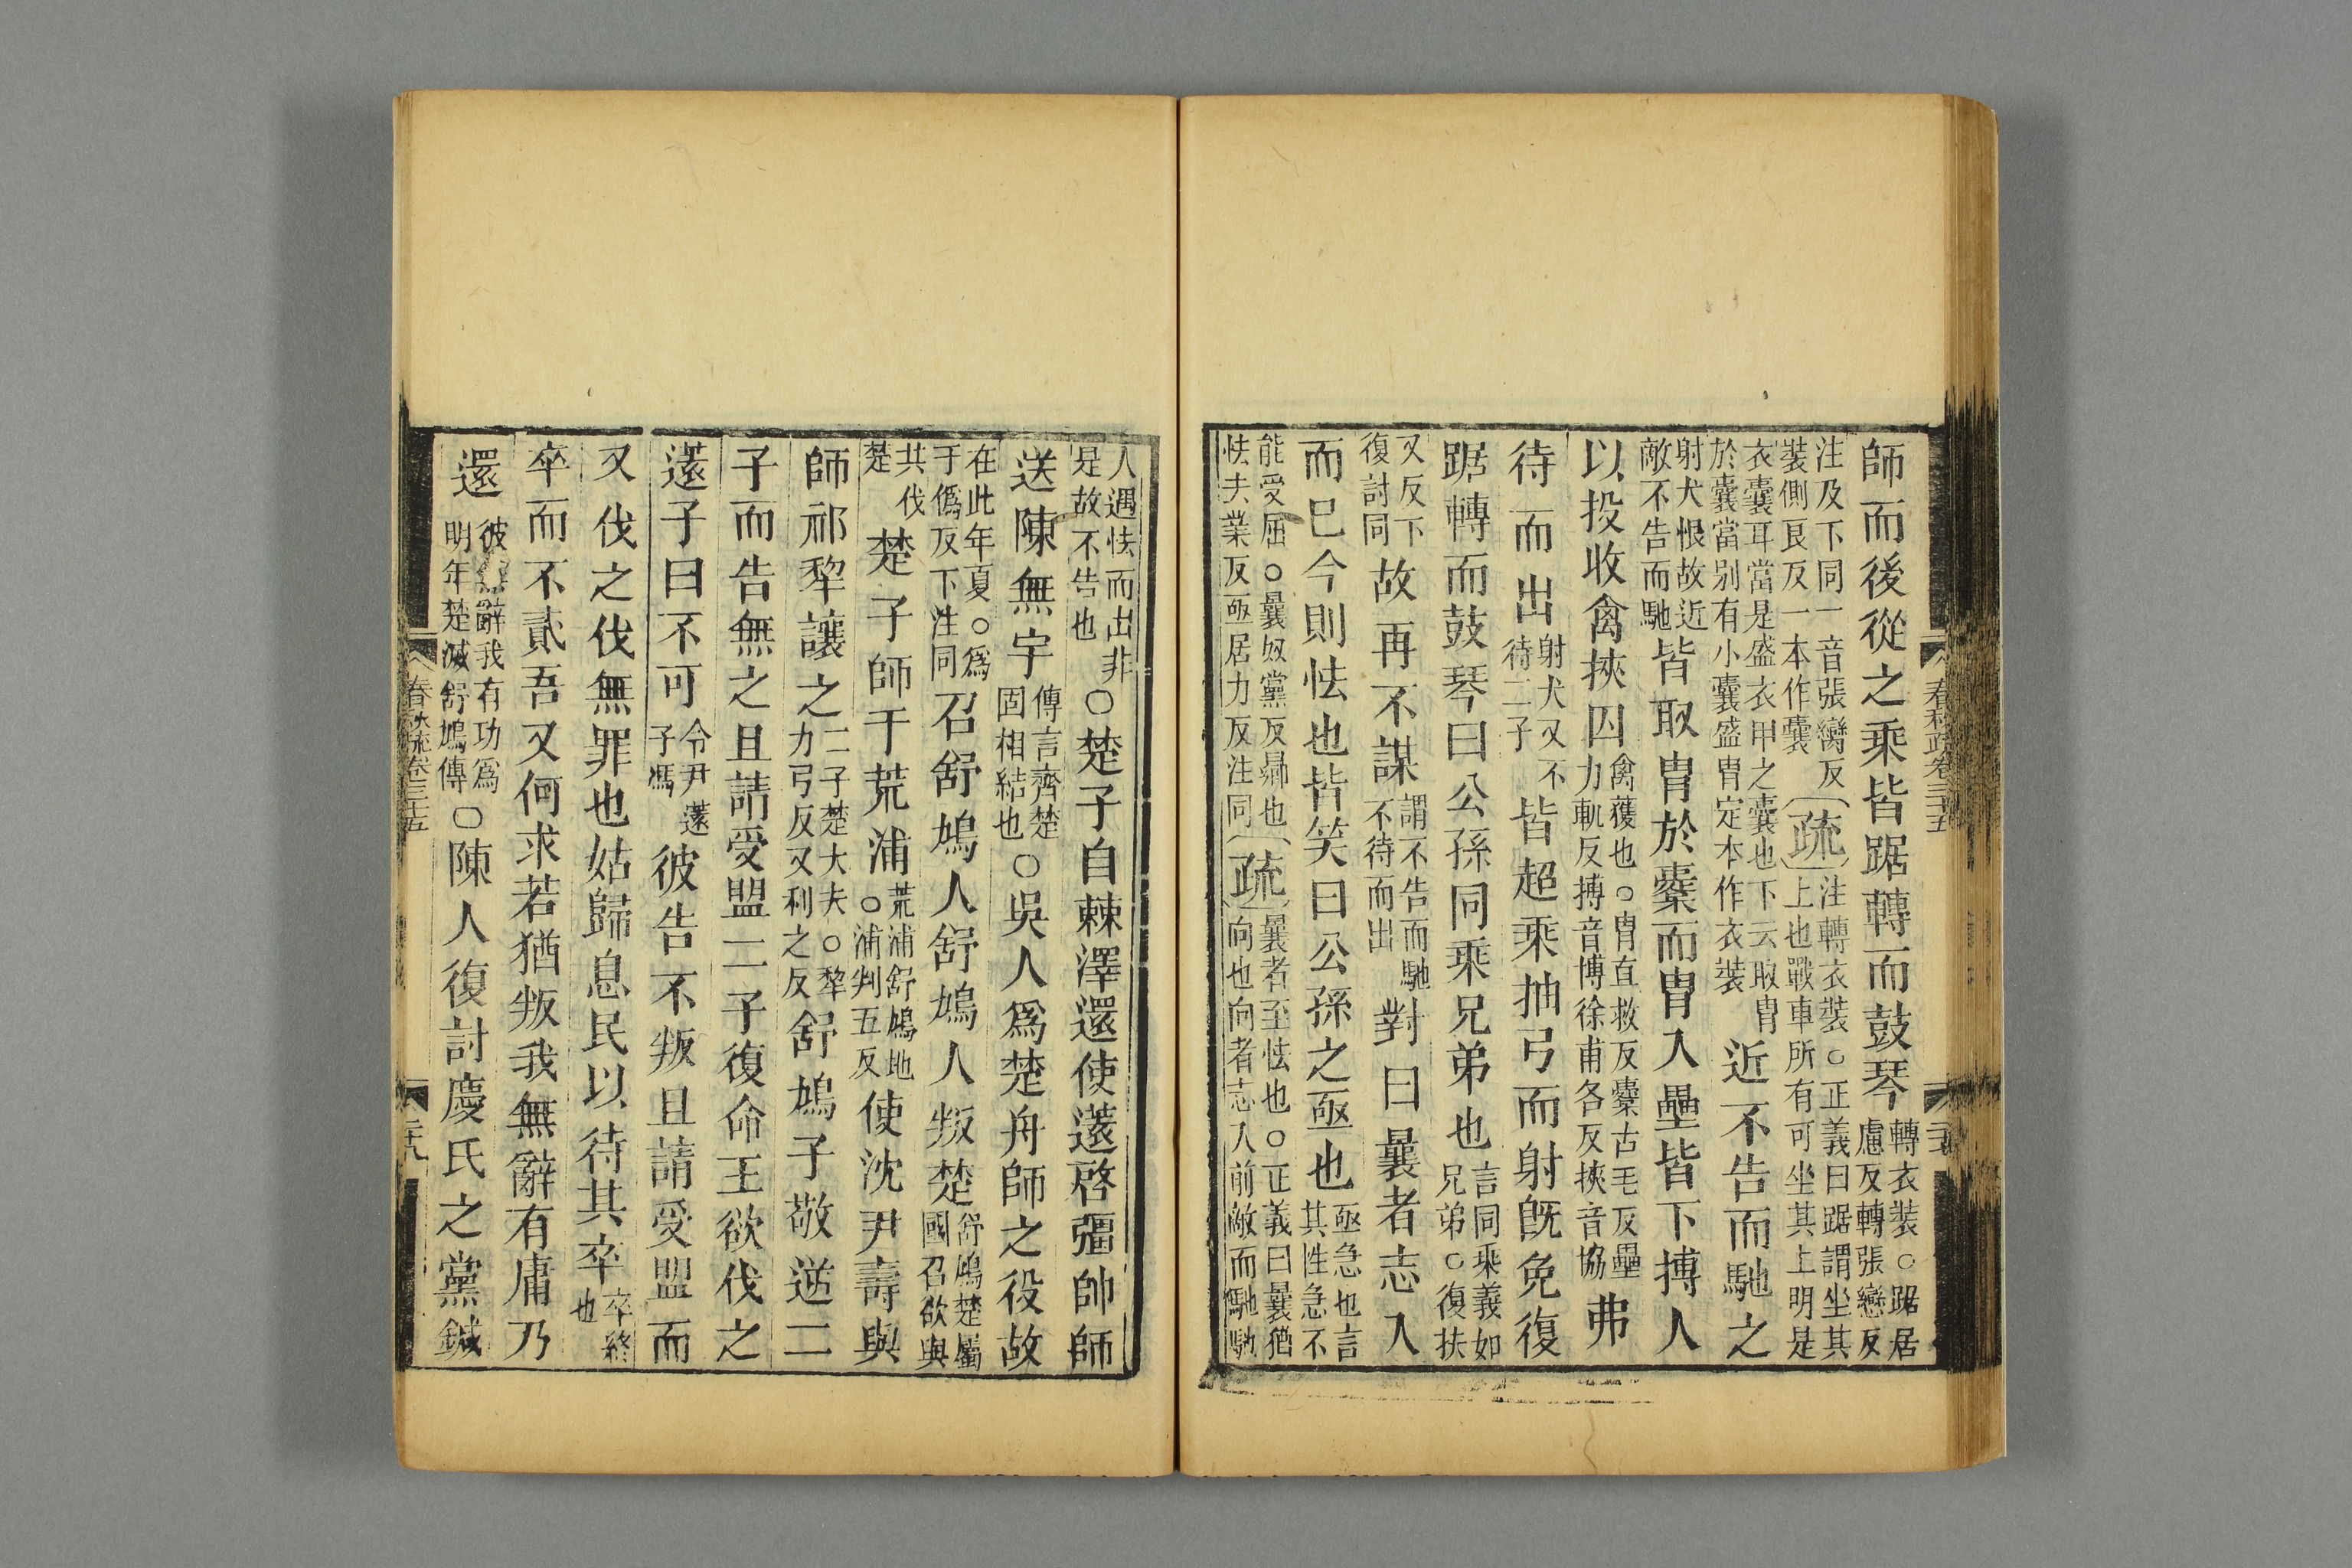 師而後從之乘皆踞轉而鼓琴轉衣裝○踞居慮反轉張戀反
注及下同一音張臠反裝側良反一本作囊疏注轉衣裝○正義曰踞謂坐其上也戰車所有可坐其上明是
衣囊耳當是盛衣甲之囊也下云取冑於囊當别有小囊盛冑定本作衣裝近不告而馳之
射犬恨故近敵不告而馳皆取冑於櫜而冑入壘皆下搏人
以投收禽挾囚禽獲也○冑直救反櫜古毛反壘力軌反搏音博徐甫各反挾音協弗
待而出射犬又不待二子皆超乘抽弓而射旣免復
踞轉而鼓琴曰公孫同乘兄弟也言同乘義如兄弟○復扶
又反下復討同故再不謀謂不告而馳不待而出對曰曩者志入
而已今則怯也皆笑曰公孫之亟也亟急也言其性急不
能受屈○曩奴黨反曏也怯去業反亟居力反注同疏曩者至怯也○正義曰曩猶向也向者志入前敵而馳馳
人遇怯而出非是故不告也○楚子自棘澤還使薳啓彊帥師
送陳無宇傳言齊楚固相結也○吳人爲楚舟師之役故
在此年夏○爲于僞反下注同召舒鳩人舒鳩人叛楚舒鳩楚屬國召欲與
共伐楚楚子師于荒浦荒浦舒鳩地○浦判五反使沈尹壽與
師祁犂讓之二子楚大夫○犂力弓反又利之反舒鳩子敬逆二
子而告無之且請受盟二子復命王欲伐之
薳子曰不可令尹薳子馮彼告不叛且請受盟而
又伐之伐無罪也姑歸息民以待其卒卒終也
卒而不貳吾又何求若猶叛我無辭有庸乃
還彼無辭我有功爲明年楚滅舒鳩傳○陳人復討慶氏之黨鍼
春秋疏卷三十五
春秋疏卷三十五